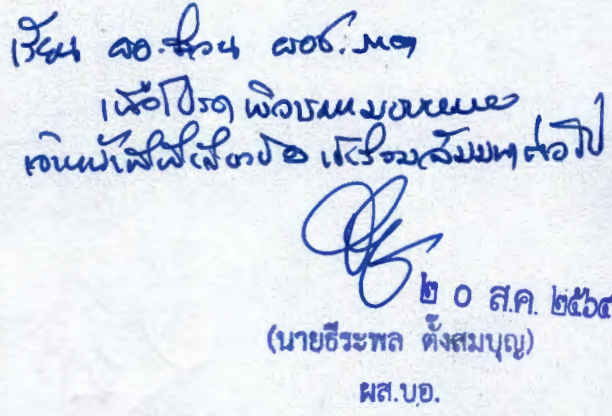 เรียน ผอ.ส่วน ผอช.ภาค
เพื่อโปรดพิจารณามอบหมาย
เจ้าหน้าที่ที่เกี่ยวข้อง เข้าร่วมสัมมนาต่อไป
๒ ๐ ส.ค. ๒๕๖๔
(นายธีระพล ตั้งสมบุญ)
ผส.บอ.